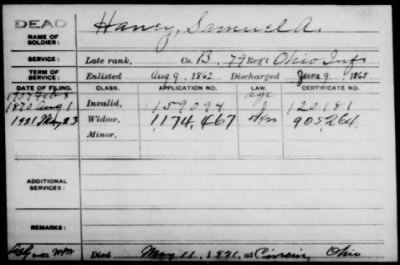 DEAD
NAME OF SOLDIER: Haney, Samuel A.
SERVICE: Late rank, Co. B, 79 Reg't Ohio Inf
TERM OF SERVICE: Enlisted Aug 9, 1862 Discharged June 9, 1865
DATE OF FILING. CLASS. APPLICATION NO. LAW. CERTIFICATE NO.
1870 Aug 1 Invalid, 159094 120181
1921 May 23 Widow, 1174,467 905264
Minor,
ADDITIONAL SERVICES:
REMARKS:
Died May 11, 1921, at Ohio